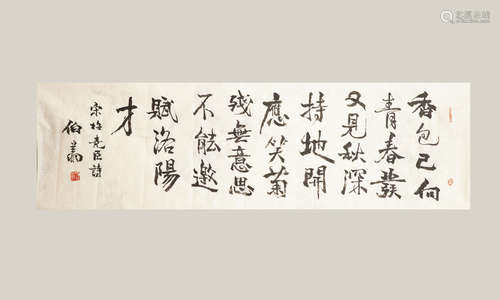 香包已向
青春發
又見秋深
持地開
應笑菊
殘無意思
不能邀
賦洛陽
才
宋梅堯臣詩
伯鼒